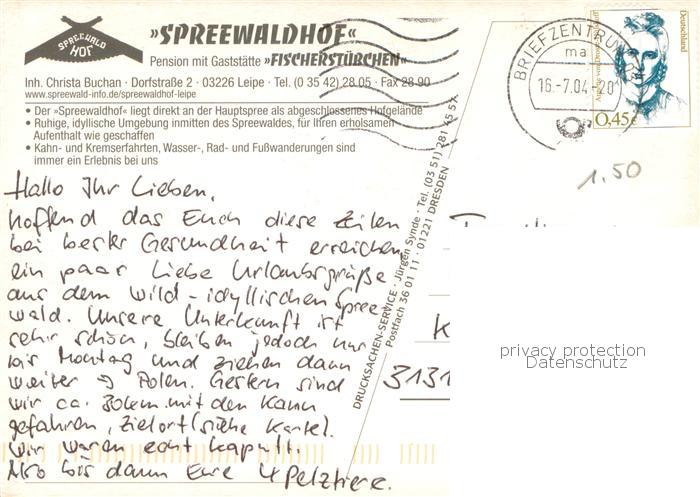 SPREEWALD HOF
»SPREEWALDHOF«
Pension mit Gaststätte »FISCHERSTÜRCHEN«
Inh. Christa Buchan · Dorfstraße 2 · 03226 Leipe · Tel. (0 35 42) 28 05 · Fax 28 90
www.spreewald-info.de/spreewaldhof-leipe
• Der »Spreewaldhof« liegt direkt an der Hauptspree als abgeschlossenes Hofgelände
• Ruhige, idyllische Umgebung inmitten des Spreewaldes, für Ihren erholsamen
Aufenthalt wie geschaffen
• Kahn- und Kremserfahrten, Wasser-, Rad- und Fußwanderungen sind
immer ein Erlebnis bei uns
Hallo Ihr Lieben,
hoffend das Euch diese Zeilen
bei bester Gesundheit erreichen,
ein paar liebe Urlaubsgrüße
aus dem wild-idyllischen Spree
wald. Unsere Unterkunft ist
sehr schön, bleiben jedoch nur
bis Montag und ziehen dann
weiter → Polen. Gestern sind
wir ca. 30km mit den Kanu
gefahren, Zielort (siehe Karte).
Wir waren echt kaputt.
Also bis dann Eure 4 Pelztiere.
DRUCKSACHEN-SERVICE · Jürgen Synde · Tel. (03 51) 281 45 57
Postfach 36 01 11 · 01221 DRESDEN
BRIEFZENTRUM
ma
16.-7.04-20
Deutschland
0,45€
1.50
K
3131
privacy protection
Datenschutz